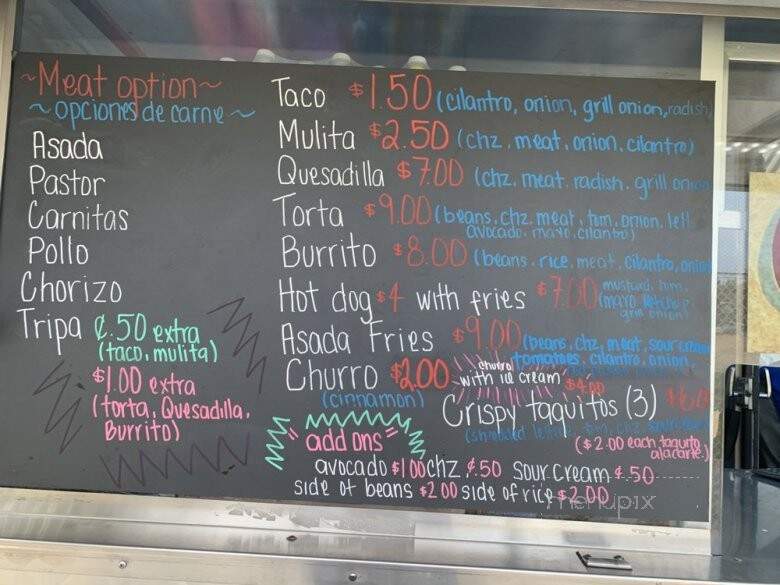 ~Meat option~
~opciones de carne~
Asada
Pastor
Carnitas
Pollo
Chorizo
Tripa ¢.50 extra
(taco, mulita)
$1.00 extra
(torta, Quesadilla,
Burrito)
Taco $1.50 (cilantro, onion, grill onion, radish
Mulita $2.50 (chz. meat. onion. cilantro)
Quesadilla $7.00 (chz. meat. radish. grill onion
Torta $9.00 (beans. chz. meat. tom. onion. lett
avocado. mayo. cilantro)
Burrito $8.00 (beans. rice. meat. cilantro, onion
Hot dog $4 with fries $7.00 mustard. tom.
(mayo. ketchup
grill onion)
Asada Fries $9.00 (beans, chz, meat, sour cream
tomatoes. cilantro. onion
Churro $2.00 churro
with ice cream $4.00
(cinnamon)
Crispy taquitos (3)
($2.00 each taquito
alacarte.)
"add ons"
avocado $1.00 chz ¢.50 sour cream ¢.50
side of beans $2.00 side of rice $2.00
menupix